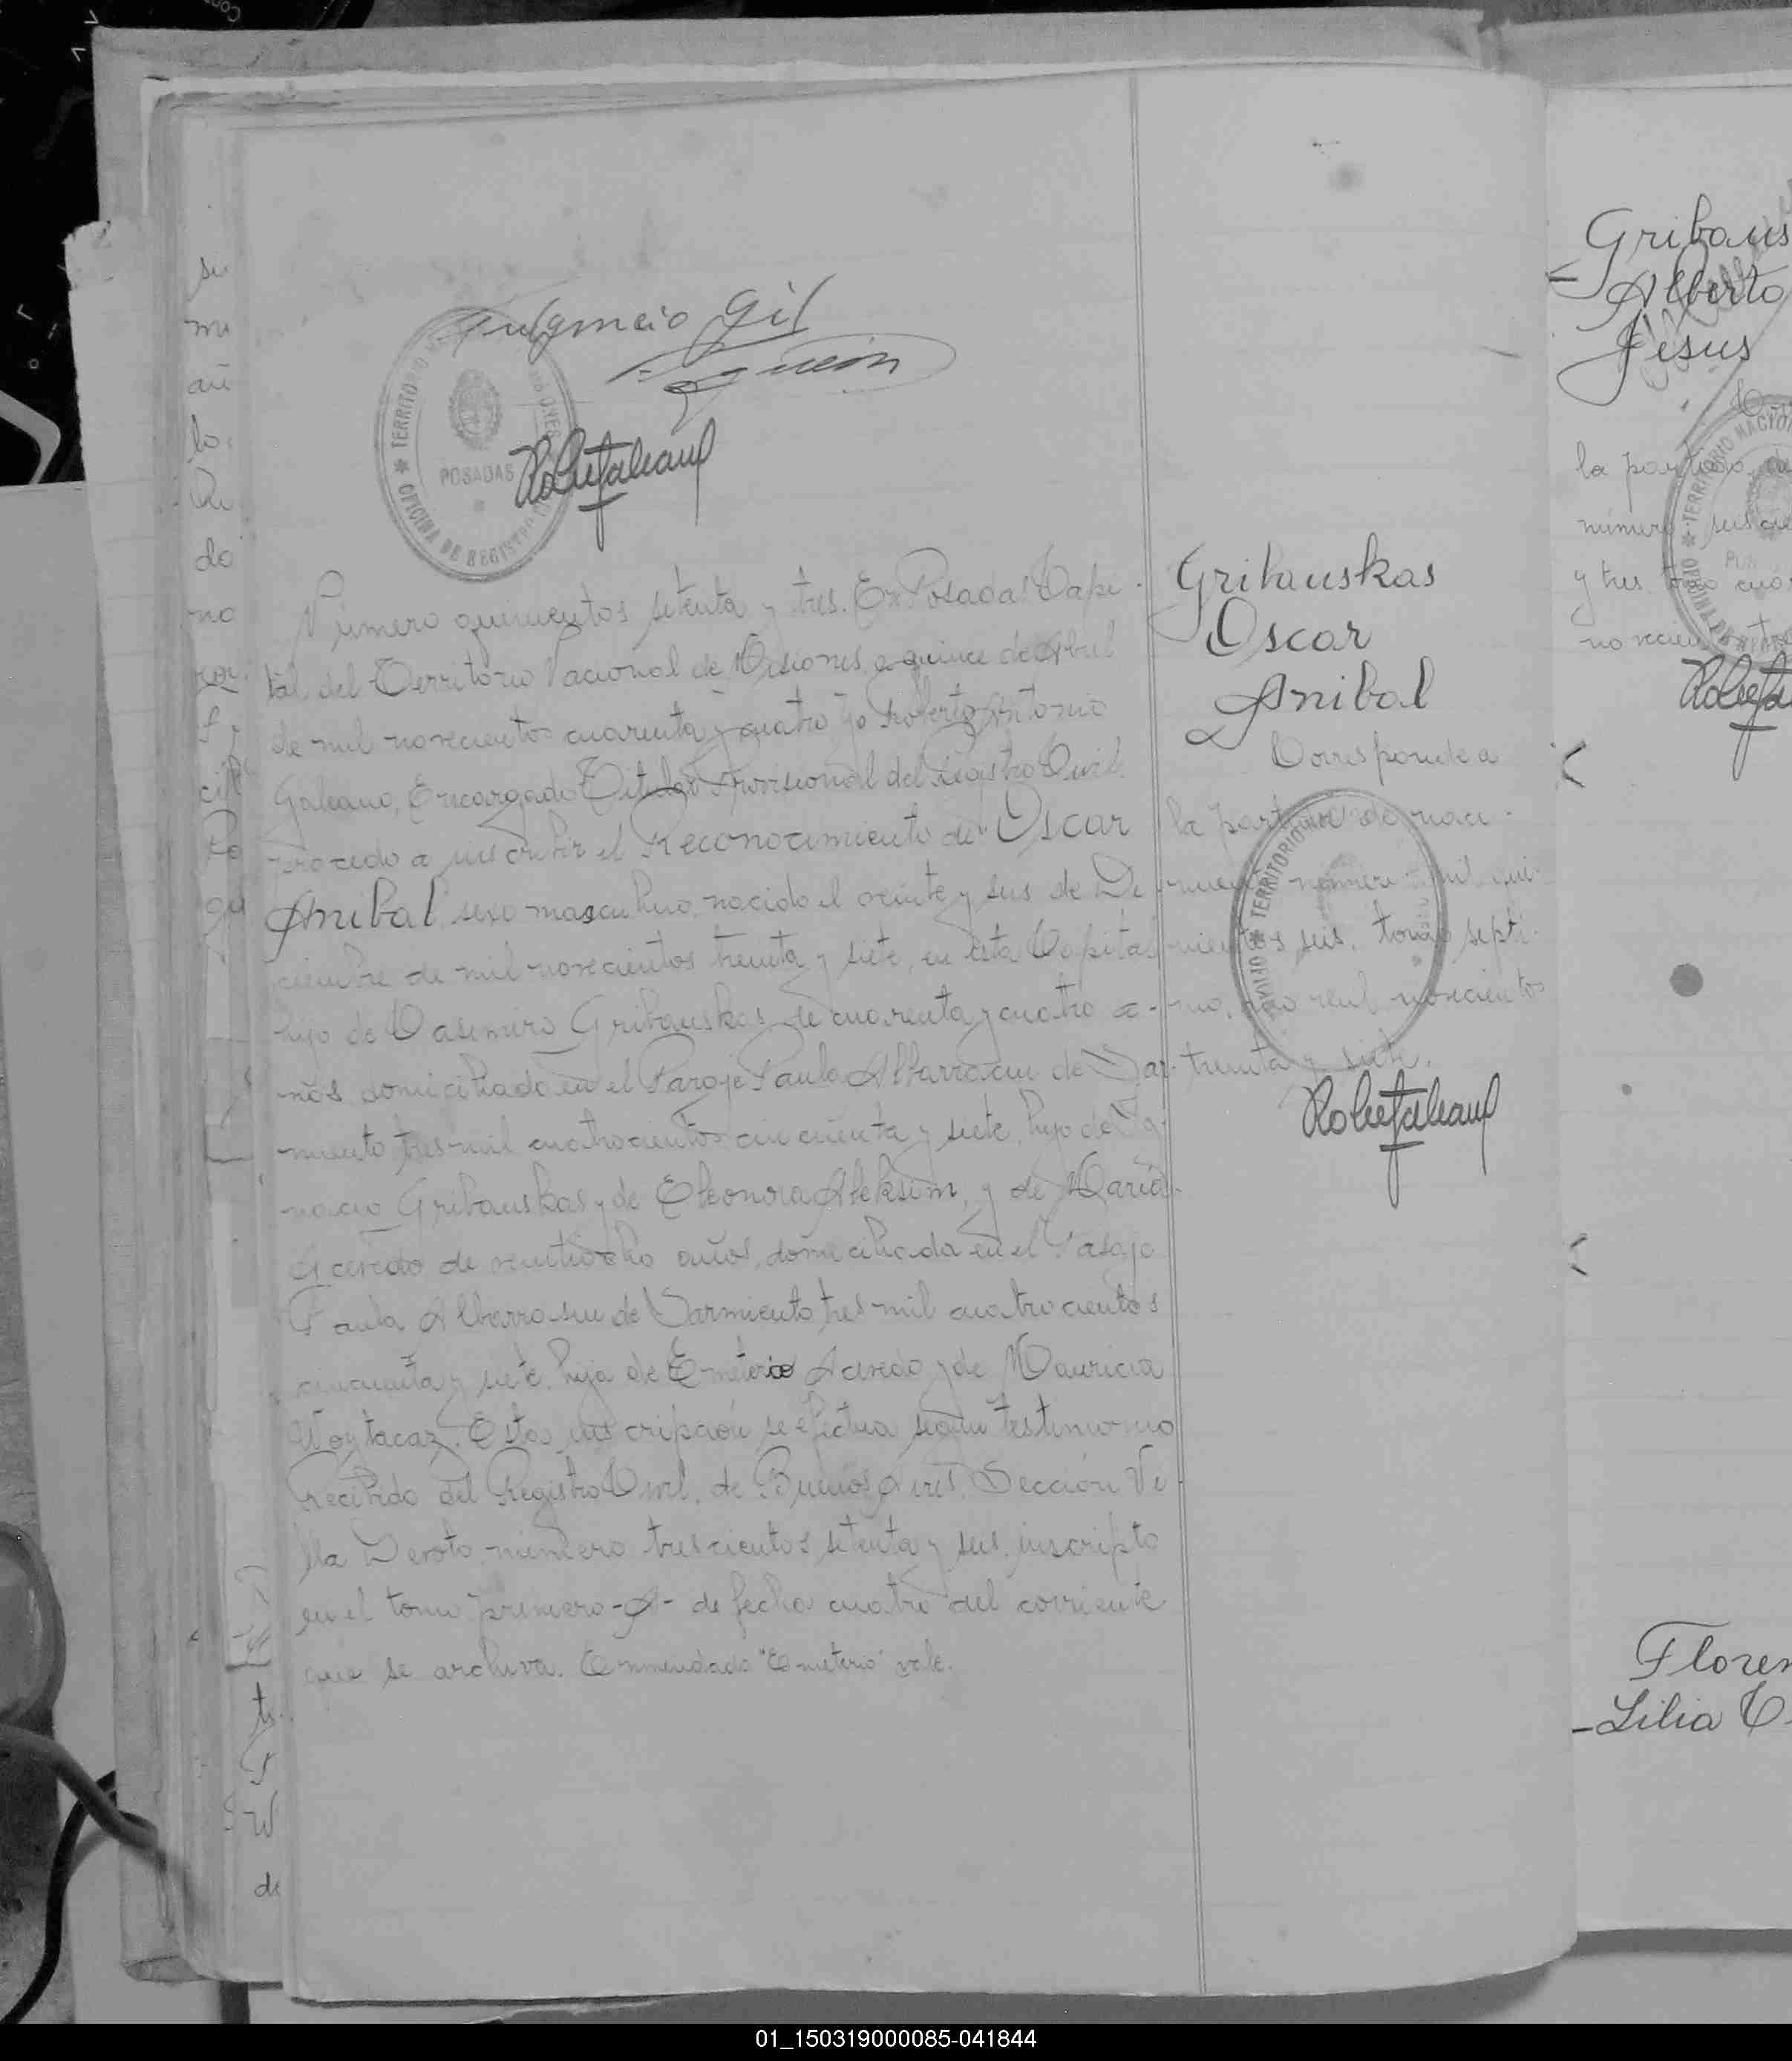 Fulgencio Gil
TERRITO
POSADAS
OFICINA DE REGISTRO
Número quinientos setenta y tres. En Posadas Capi-
tal del Territorio Nacional de Misiones, a quince de Abril
de mil novecientos cuarenta y cuatro yo Roberto Antonio
Galeano, Encargado Titular Provisional del Registro Civil
procedo a inscribir el Reconocimiento de "Oscar
Anibal, sexo masculino, nacido el veinte y seis de Di-
ciembre de mil novecientos treinta y siete, en esta Capital
hijo de Casimiro Gribauskas de cuarenta y cuatro a-
ños domiciliado en el Paraje Paula Albarracin de Sar-
miento tres mil cuatrocientos cincuenta y siete, hijo de Ig-
nacio Gribauskas y de Eleonora Aleksim, y de Maria
Acevedo de veintiocho años, domiciliada en el Pasaje
Paula Albarrasin de Sarmiento tres mil cuatrocientos
cincuenta y siete, hija de Emeterio Acevedo y de Mauricia
Woytacaz. Esta inscripción se efectua según testimonio
recibido del Registro Civil, de Buenos Aires, Sección Vi-
lla Devoto número trescientos setenta y seis, inscripto
en el tomo primero -A- de fecha cuatro del corriente
que se archiva. Enmendado "Emeterio" vale.
Gribauskas
Oscar
Anibal
Corresponde a
la partida de naci-
miento número mil qui-
nientos seis, tomo septi-
mo, año mil novecientos
treinta y siete.
TERRITORIO
Gribaus
Alberto
Jesus
la partida
número
y tres
novecien
TERRITORIO NACION
Floren
Lilia
su
mi
añ
lo
do
no
de
01_150319000085-041844